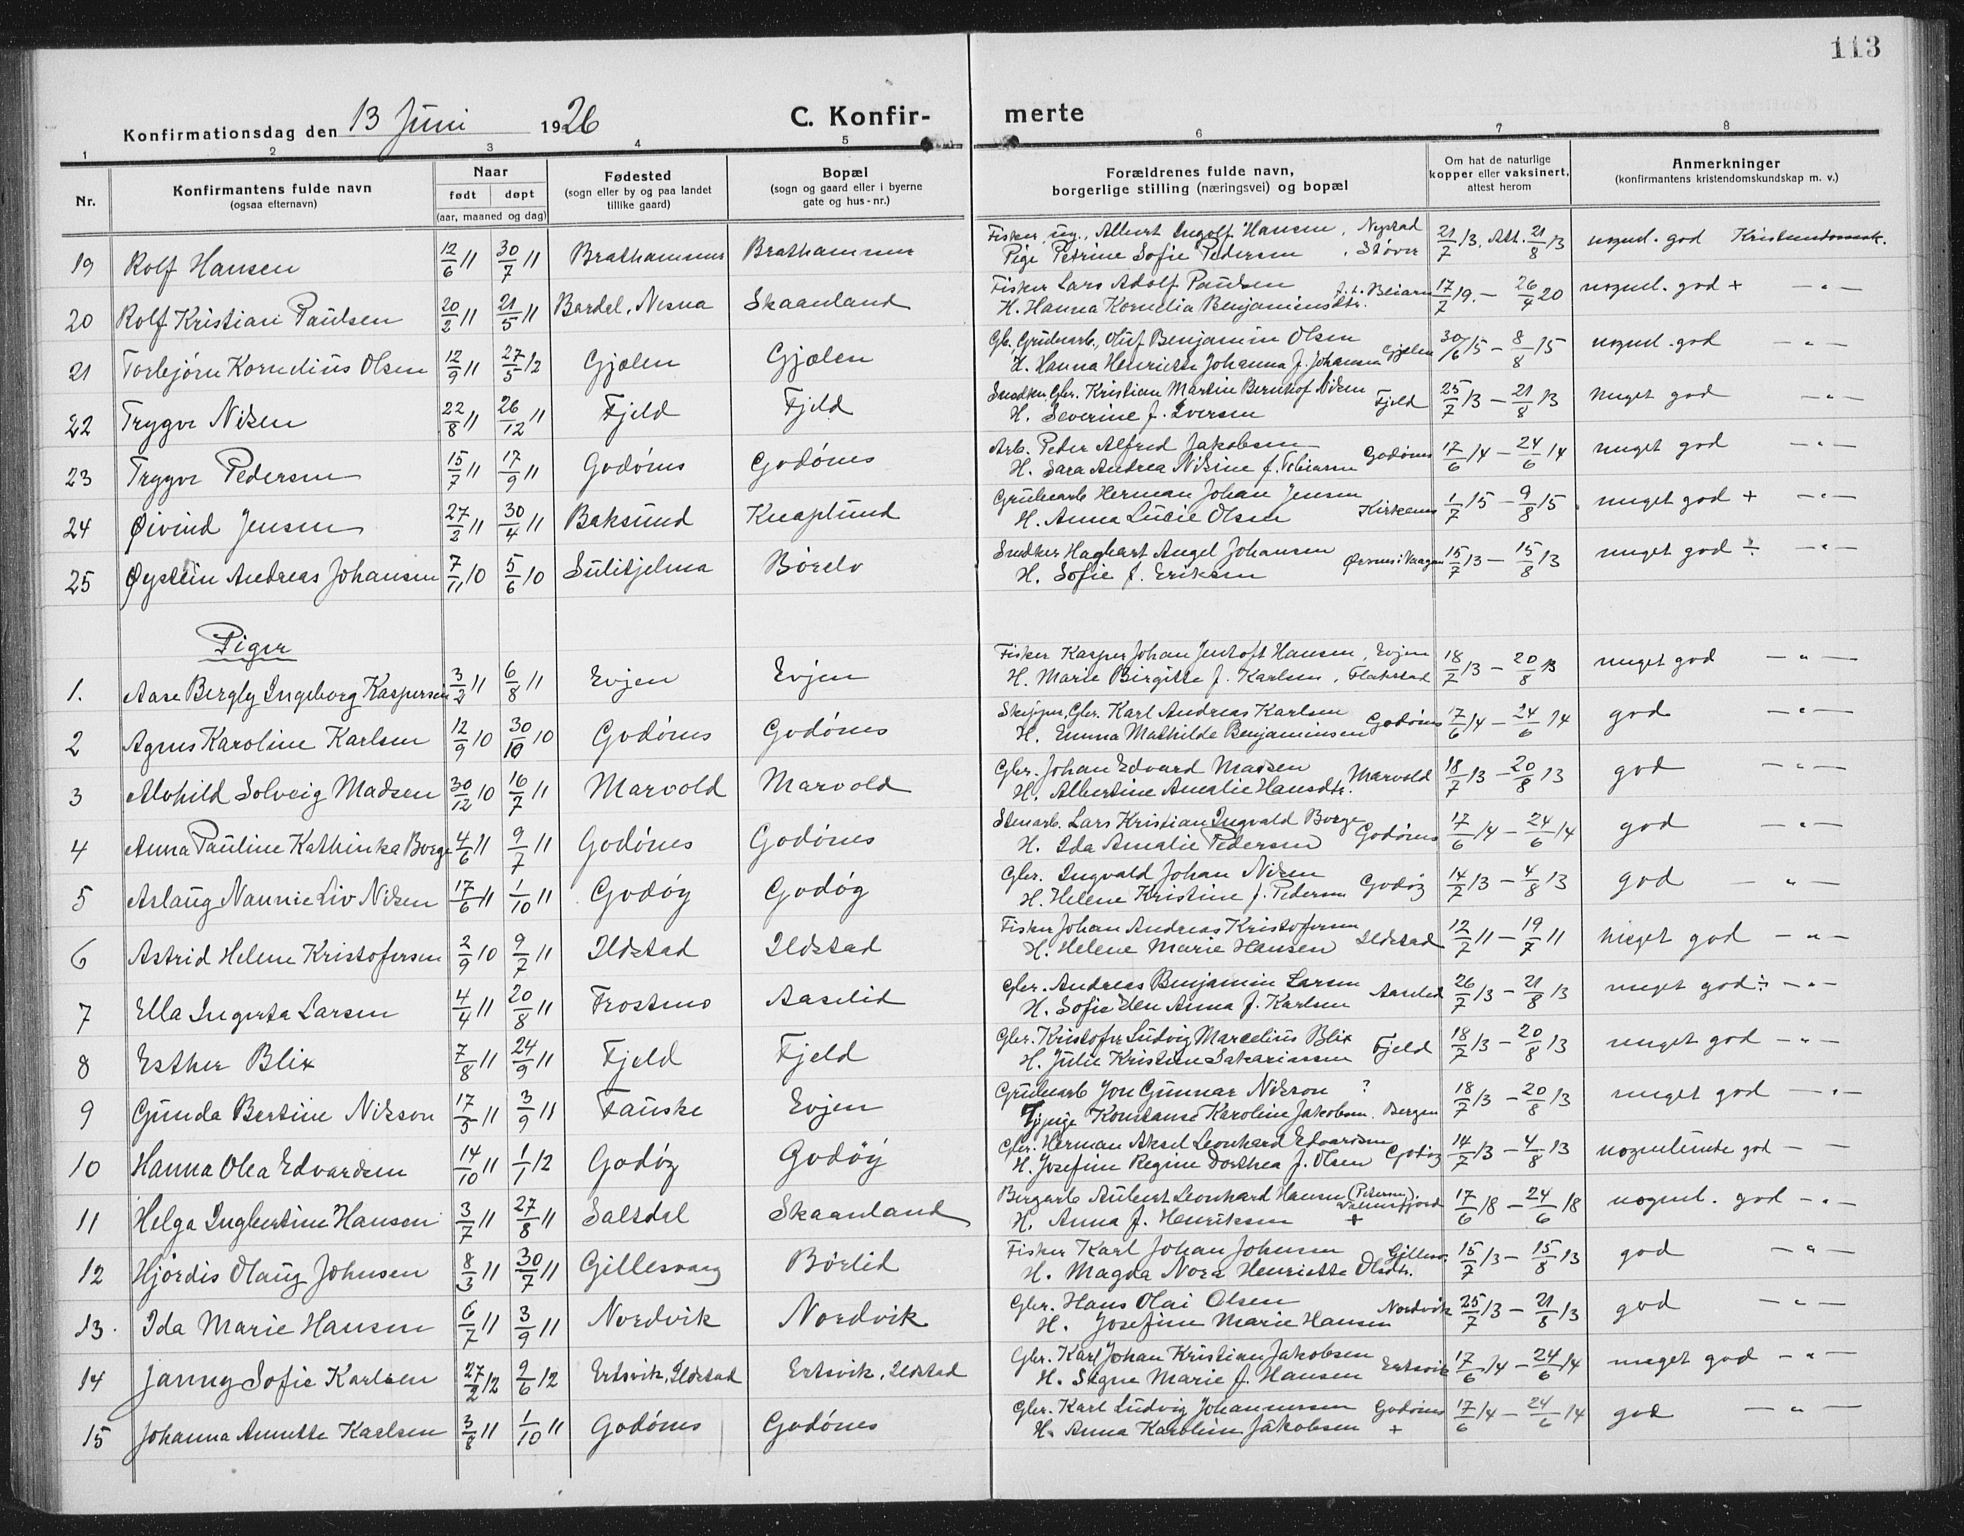 113
Konfirmationsdag den 13 Juni 1926 C. Konfirmerte
1 2 3 4 5 6 7 8
Nr. Konfirmantens fulde navn (ogsaa efternavn) Naar født døpt (aar, maaned og dag) Fødested (sogn eller by og paa landet tillike gaard) Bopæl (sogn og gaard eller i byerne gate og hus-nr.) Forældrenes fulde navn, borgerlige stilling (næringsvei) og bopæl Om hat de naturlige kopper eller vaksinert, attest herom Anmerkninger (konfirmantens kristendomskundskap m. v.)
19 Rolf Hansen 12/6 11 30/7 11 Brathammer Brathammer Fisker, ug., Albert Ingolf Hansen, Nystad 21/7 13, Att. 21/8 13 nogenl. god Kristendomsk.
Pige Petrine Sofie Pedersen, Støver
20 Rolf Kristian Paulsen 20/2 11 21/5 11 Bardal, Nesna Skaanland Fisker Lars Adolf Paulsen 17/7 19. – 26/4 20 nogenl. god + – " –
H. Hanna Kornelia Benjaminsdtr. Beiarn
21 Torbjørn Kornelius Olsen 12/9 11 27/5 12 Gjælen Gjælen Gb. Grubearb. Oluf Benjamin Olsen 30/6 15 – 8/8 15 nogenl. god – " –
H. Hanna Henriette Johanna f. Johansen Gjælen
22 Trygve Nilsen 22/8 11 26/12 11 Fjeld Fjeld Snedker, Gbr. Kristian Martin Bernhof Nilsen Fjeld 25/7 13 – 21/8 13 meget god – " –
H. Severine f. Iversen
23 Trygve Pedersen 15/7 11 17/9 11 Godønes Godønes Arb. Peder Alfred Jakobsen Godønes 17/6 14 – 24/6 14 meget god – " –
H. Sara Andrea Nilsine f. Tobiasen
24 Øivind Jensen 27/2 11 30/4 11 Baksund Knaplund Grubearb Herman Johan Jensen 1/7 15 – 9/8 15 meget god + – " –
H. Anna Lucie Olsen Kirkenes
25 Øystein Andreas Johansen 7/11 10 5/6 10 Sulitjelma Børelv Snedker Hagbart Angel Johansen 15/7 13 – 15/8 13 meget god ÷ – " –
H. Sofie f. Eriksen Ørsnes i Vaagan
Piger
1. Aase Bergly Ingeborg Kaspersen 3/2 11 6/8 11 Evjen Evjen Fisker Kasper Johan Jentoft Hansen, Evjen 18/7 13 – 20/8 13 meget god – " –
H. Marie Birgitte f. Karlsen, Flakstad
2 Agnes Karoline Karlsen 12/9 10 30/10 10 Godønes Godønes Skipper, Gbr. Karl Andreas Karlsen Godønes 17/6 14 – 24/6 14 god – " –
H. Emma Mathilde Benjaminsen
3 Alvhild Solveig Madsen 30/12 10 16/7 11 Marvold Marvold Gbr. Johan Edvard Madsen Marvold 18/7 13 – 20/8 13 god – " –
H. Albertine Amalie Hansdtr.
4 Anna Pauline Kathinka Borge 4/6 11 9/7 11 Godønes Godønes Stenarb. Lars Kristian Ingvald Borge 17/6 14 – 24/6 14 god – " –
H. Ida Amalie Pedersen Godønes
5 Aslaug Nannie Liv Nilsen 17/6 11 1/10 11 Godøy Godøy Gbr. Ingvald Johan Nilsen 14/7 13 – 4/8 13 god – " –
H. Helene Kristine f. Pedersen Godøy
6 Astrid Helene Kristofersen 2/9 10 9/7 11 Ildstad Ildstad Fisker Johan Andreas Kristofersen 12/7 11 – 19/7 11 meget god – " –
H. Helene Marie Hansen Ildstad
7 Ella Ingerta Larsen 4/4 11 20/8 11 Frostmo Aaselid Gbr. Andreas Benjamin Larsen 26/7 13 – 21/8 13 meget god ÷ – " –
H. Sofie Elen Anna f. Karlsen Aaselid
8 Esther Blix 7/8 11 24/9 11 Fjeld Fjeld Gbr. Kristofer Ludvig Marcelius Blix Fjeld 18/7 13 – 20/8 13 meget god – " –
H. Julie Kristine Sakariassen
9 Gunda Bertine Nilsson 17/5 11 3/9 11 Fauske Evjen Grubearb Jon Gunnar Nilsson ? 18/7 13 – 20/8 13 meget god – " –
Tjpige Konstanse Karoline Jakobsen. Bergen
10 Hanna Olea Edvardsen 14/10 11 1/1 12 Godøy Godøy Gbr. Herman Aksel Leonhard Edvardsen 14/7 13 – 4/8 13 nogenlunde god – –
H. Josefine Regine Dorthea f. Olsen Godøy
11 Helga Ingbertine Hansen 3/7 11 27/8 11 Saltdal Skaanland Bergarb Aubert Leonhard Hansen (Petersen). Valnesfjord 17/6 18 – 24/6 18 nogenl. god – " –
H. Anna f. Henriksen +
12 Hjørdis Olaug Johnsen 8/3 11 30/7 11 Gillesvaag Børlid Fisker Karl Johan Johnsen Gillesv. 15/7 13 – 15/8 13 god – " –
H. Magda Nora Henriette Olsdtr.
13. Ida Marie Hansen 6/7 11 3/9 11 Nordvik Nordvik Gbr. Hans Olai Olsen Nordvik 25/7 13 – 21/8 13 god – " –
H. Josefine Marie Hansen
14 Janny Sofie Karlsen 27/2 12 2/6 12 Ertsvik, Ildstad Ertsvik, Ildstad Gbr. Karl Johan Kristian Jakobsen 17/6 14 – 24/6 14 meget god – " –
H. Signe Marie f. Hansen Ertsvik
15 Johanna Annette Karlsen 3/8 11 1/10 11 Godønes Godønes Gbr. Karl Ludvig Johannessen Godønes 17/6 14 – 24/6 14 god – " –
H. Anna Karoline Jakobsen +